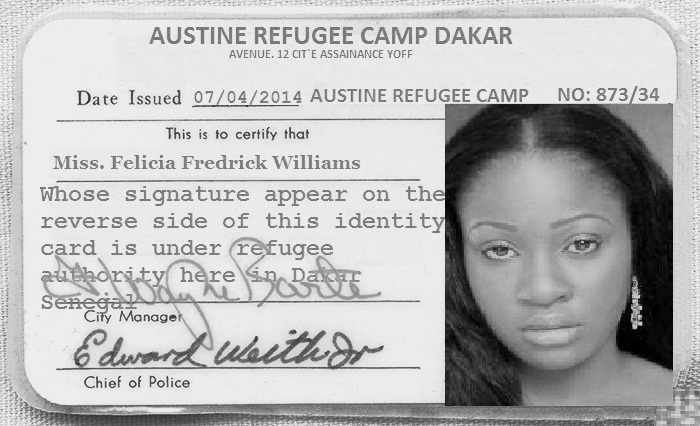 AUSTINE REFUGEE CAMP DAKAR
AVENUE. 12 CIT`E ASSAINANCE YOFF
Date Issued 07/04/2014 AUSTINE REFUGEE CAMP NO: 873/34
This is to certify that
Miss. Felicia Fredrick Williams
Whose signature appear on the
reverse side of this identity
card is under refugee
authority here in Dakar
Senegal
City Manager
Edward Weith Jr
Chief of Police